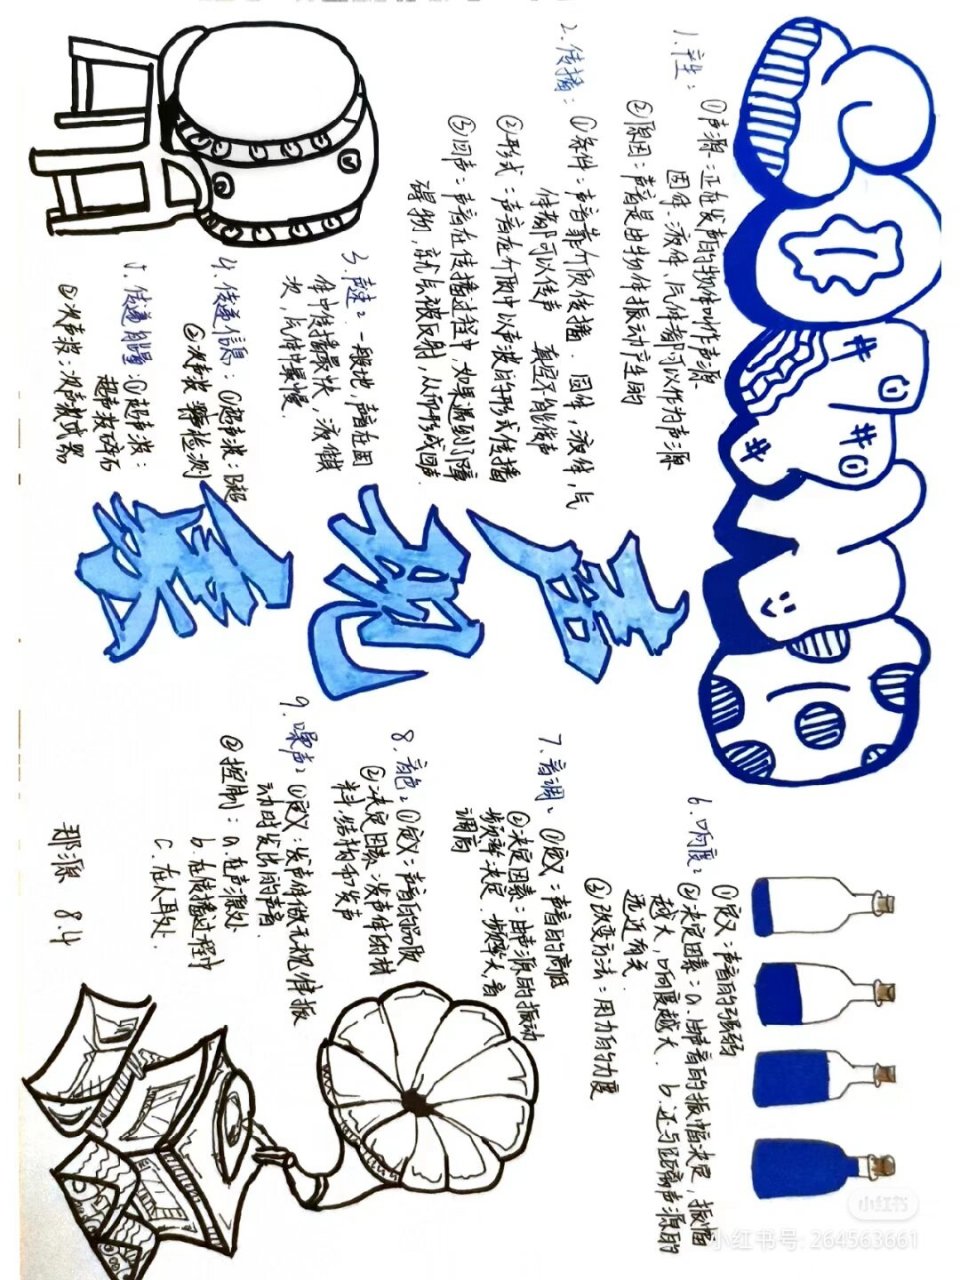 SOUND
声现象
1.产生：
①声源：正在发声的物体叫作声源
固体、液体、气体都可以作为声源
②原因：声音是由物体振动产生的
2.传播：①条件：声音靠介质传播. 固体，液体，气
体都可以传声 真空不能传声
②形式：声音在介质中以声波的形式传播
③回声：声音在传播过程中，如果遇到障
碍物，就会被反射，从而形成回声.
3.声速：一般地，声音在固
体中传播最快，液体
次，气体中最慢
4.传递信息：①超声波：B超
②次声波 检测
5.传递能量 ①超声波：
超声波碎石
②次声波：次声武器
6.响度：
①定义：声音的强弱
②决定因素：a.由声音的振幅决定，振幅
越大，响度越大. b.还与距离声源的
远近有关
③改变方法：用力的力度
7.音调：①定义：声音的高低
②决定因素：由声源的振动
频率决定. 频率大音
调高
8.音色：①定义：声音的品质
②决定因素：发声体的材
料，结构和发声
9.噪声：①定义：发声体做无规律振
动时发出的声音.
②控制：a.在声源处
b.在传播过程中
c.在人耳处.
8.4
小红书
小红书号: 264563661